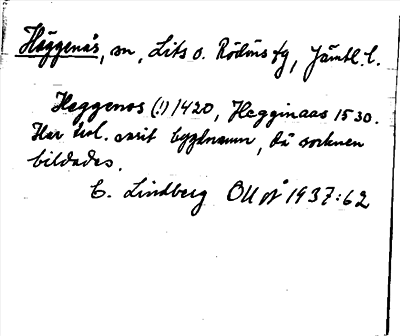 Häggenås, sn, Lits o. Rödöns tg, Jämtl. l.
Heggenos (!) 1420, Hegginaas 1530.
Har trol. varit bygdenamn, då socknen
bildades.
C. Lindberg OUÅ 1937:62